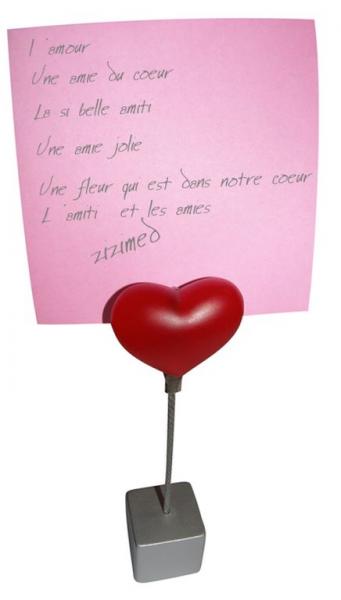 l 'amour
Une amie du coeur
La si belle amiti
Une amie jolie
Une fleur qui est dans notre coeur
L 'amiti et les amies
zizimed